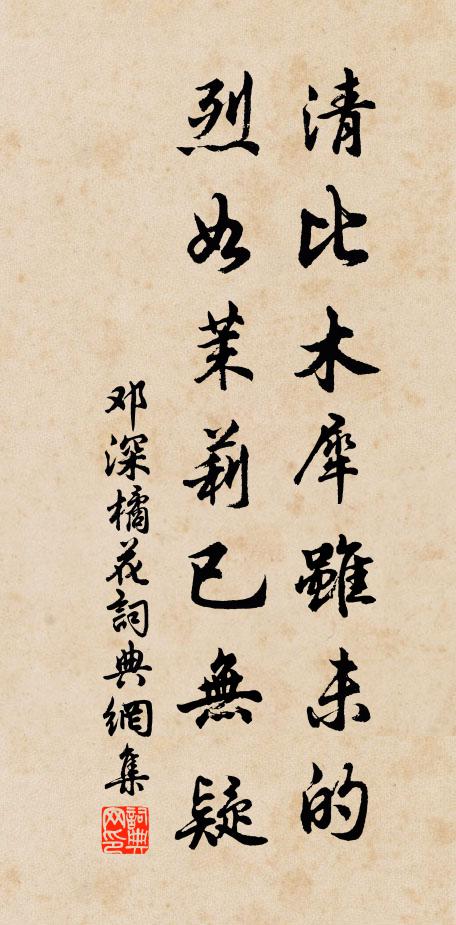 清比木犀雖未的
烈如茉莉已無疑
邓深橘花詞典網集
詞典网印